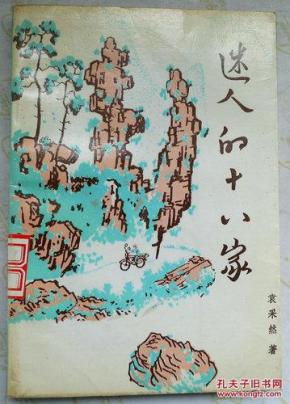 迷人的十八家
袁采然 著
孔夫子旧书网
www.kongfz.com